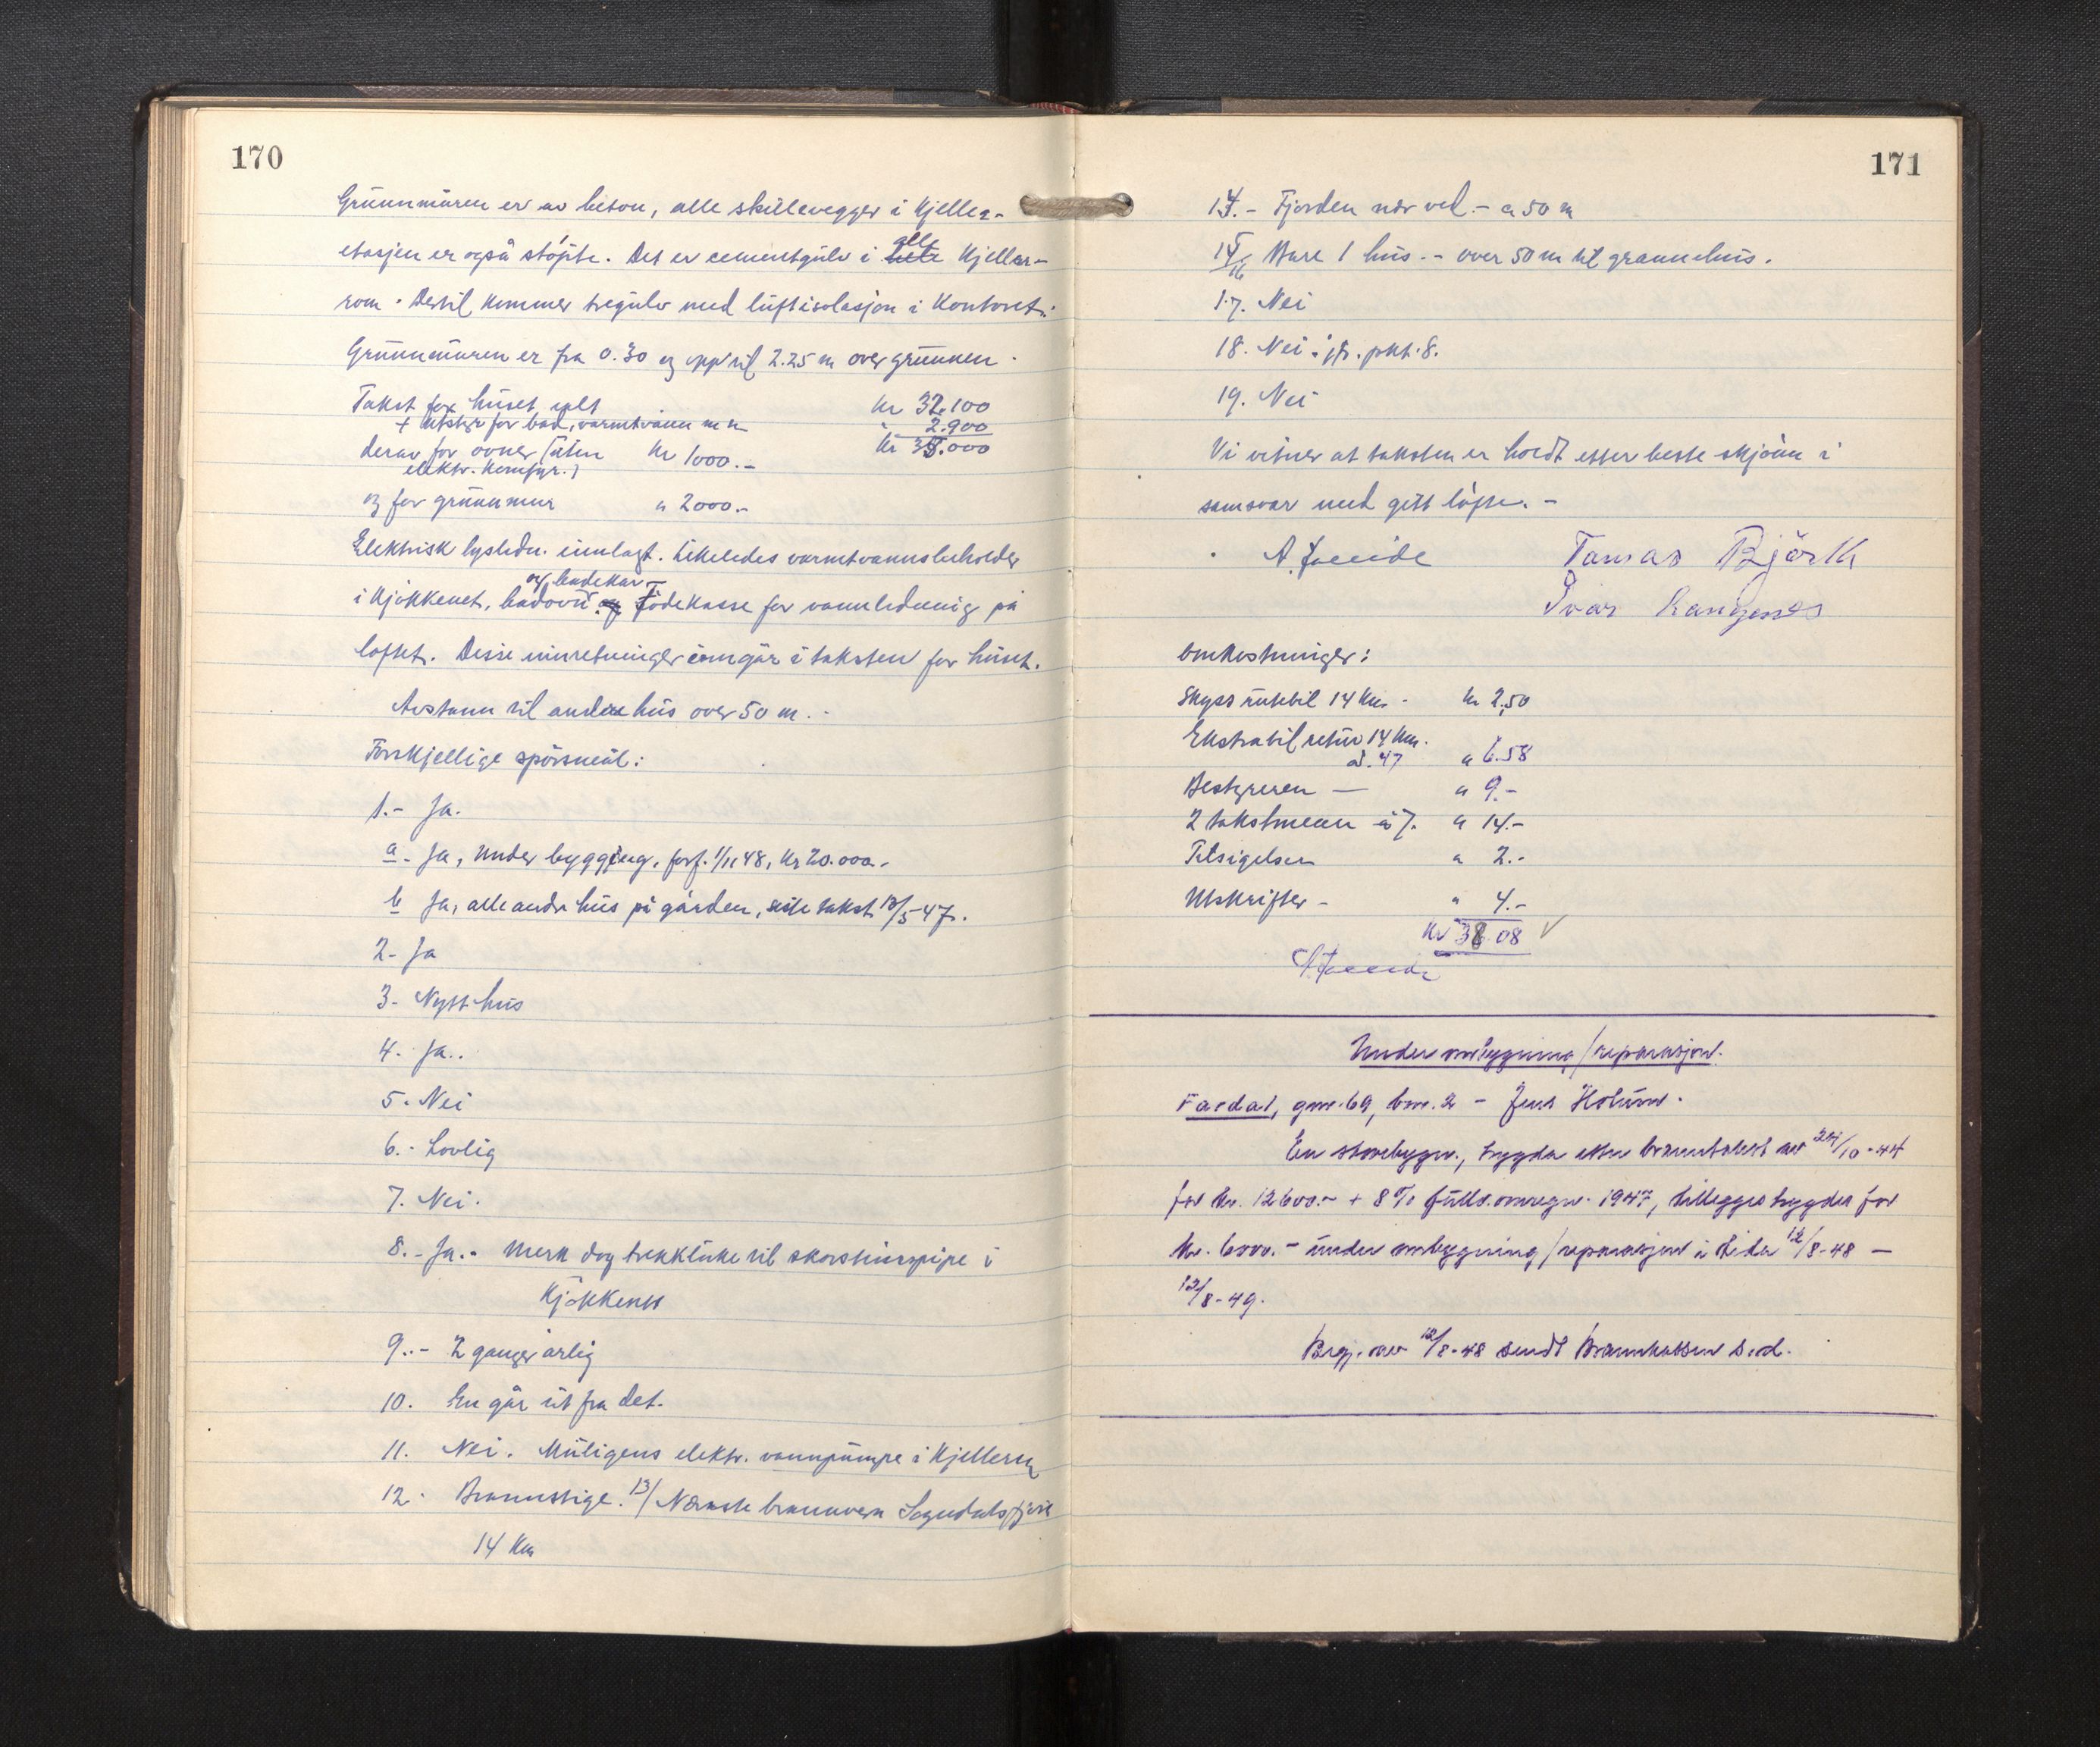 170
Grunnmuren er av beton, alle skillevegger i kjeller-
etasjen er også støpte. Det er cementgulv i alle kjeller-
rom. Dertil kommer tregulv med luftisolasjon i kontoret.
Grunnmuren er fra 0.30 og opp til 2.25 m over grunnen.
Takst for huset ialt kr 32.100
+ utstyr for bad, varmtvann m m " 2.900
derav for ovner (uten kr 1000.- kr 35.000
elektr. komfyr.)
og for grunnmur " 2000.-
Elektrisk lysledn. innlagt. Likeledes varmtvannsbeholder
og badekar
i kjøkkenet, badovn. Fødekasse for vannledning på
loftet. Disse innretninger inngår i taksten for huset.
Avstann til andre hus over 50 m. -
Forskjellige spørsmål:
1.- Ja.
a- Ja, under bygging, forf. 1/11 48, kr 20.000.-
b Ja, alle andre hus på gården, siste takst 13/5-47.
2- Ja
3- Nytt hus
4- Ja..
5. Nei
6.- Lovlig
7. Nei.
8.- Ja.- Merk dog trekkluke til skorsteinspipe i
kjøkkenet
9.- 2 ganger årlig
10. En går ut fra det.
11. Nei. Muligens elektr. vannpumpe i kjelleren
12. Brannstige. 13/ Nærmeste brannvern Sogndalsfjøra
14 km
171
14.- Fjorden nær ved.- a 50 m
15/16 Bare 1 hus.- over 50 m til grannehus.
17. Nei
18. Nei. jfr. pkt. 8.
19. Nei
Vi vitner at taksten er holdt etter beste skjønn i
samsvar med gitt løfte. -
Tomas Björk
Ivar
Omkostninger:
Skyss rutebil 14 km - kr 2,50
Ekstrabil retur 14 km.
à .47 " 6.58
Bestyreren — " 9.-
2 takstmenn à 7. " 14.-
Tilsigelsen " 2.-
Utskrifter - " 4.-
kr 38.08
Under ombygning/reparasjon.
Fardal, gnr. 69, bnr. 2 - Jens Holum.
En stovebygn., trygda etter branntakst av 24/10-44
for kr. 12600.- + 8 % omregn. 1947, tilleggstrygdes for
kr. 6000.- under ombygning/reparasjon i tida 12/8-48 —
12/8-49.
Begj. av 12/8-48 sendt Brannkassen s.d.